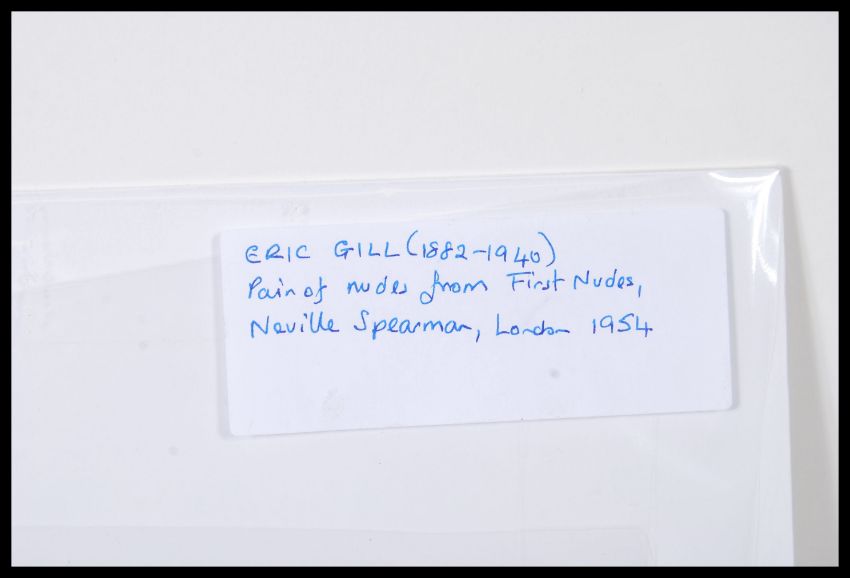 ERIC GILL (1882-1940)
Pair of nudes from First Nudes,
Neville Spearman, London 1954